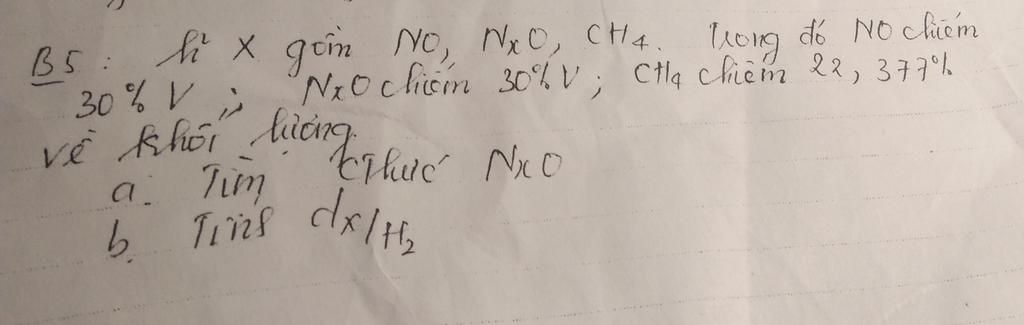 B5: hỗ X gồm NO, NxO, CH4. Trong đó NO chiếm
30% V; NxO chiếm 30% V; CH4 chiếm 22,377%
về khối lượng.
a. Tìm CThức NxO
b. Tính dx/H2